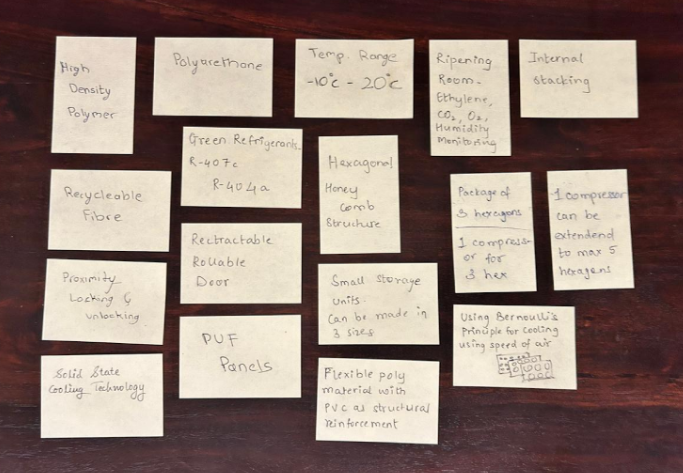 High
Density
Polymer
Polyurethane
Temp. Range
-10°c - 20°c
Ripening
Room -
Ethylene,
CO2, O2,
Humidity
Monitoring
Internal
stacking
Green Refrigerants.
R-407c
R-404a
Hexagonal
Honey
Comb
Structure
Recycleable
Fibre
Rectractable
Rollable
Door
Package of
3 hexagons
1 compress-
or for
3 hex
1 compressor
can be
extendend
to max 5
hexagens
Proximity
Locking &
unlocking
Small Storage
units
Can be made in
3 sizes
Using Bernoulli's
Principle for cooling
using speed of air
PUF
Panels
Solid State
Cooling Technology
Flexible poly
material with
PVC as structural
reinforcement